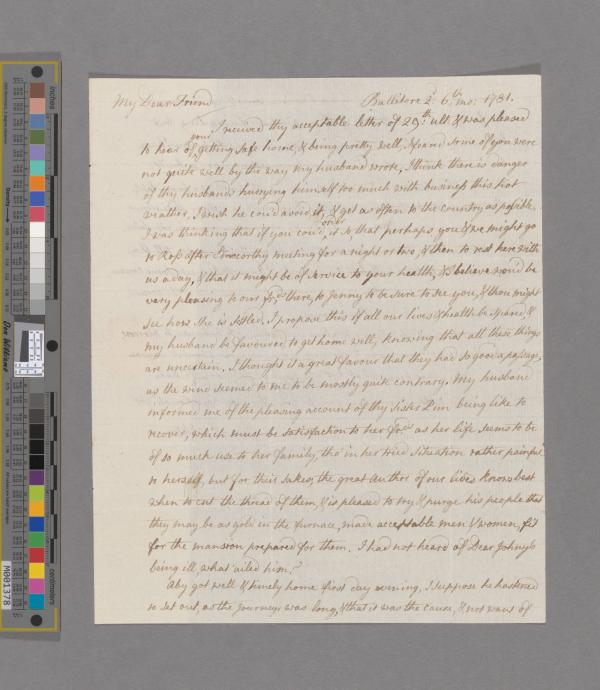 My Dear Friend Ballitore 2d. 6th. mo: 1781.
I received thy acceptable letter of 29th: ult & was pleased
your
to hear of getting safe home, & being pretty well, I heard some of you were
not quite well by the way my husband wrote, I think there is danger
of thy husbands hurrying himself too much with business this hot
weather, I wish he cou'd avoid it, & get as often to the country as possible,
order
I was thinking that if you cou'd, it so that perhaps you & we might go
to Ross after Enniscorthy meeting for a night or two, & then to rest here with
us a day, & that it might be of service to your health, & I believe wou'd be
very pleasing to our frds. there, to Jenny to be sure to see you, & thou might
see how she is settled. I propose this if all our lives & health be spared, &
my husband be favoured to get home well, knowing that all these things
are uncertain, I thought it a great favour that they had so good a passage,
as the wind seemed to me to be mostly quite contrary. My husband
informed me of the pleasing account of thy Sister Pim being like to
recover, which must be satisfaction to her frds. as her life seems to be
of so much use to her family, tho' in her tried situation rather painful
to herself, but for their sakes, the great Author of our lives knows best
when to cut the thread of them, & is pleased to try & purge his people that
they may be as gold in the furnace, made acceptable men & women, fit
for the mansion prepared for them. I had not heard of Dear Johnys
being ill, what ailed him?
Aby got well & timely home first day evening, I suppose he hastened
to set out, as the journey was long, & that it was the cause, & not want of
inches
centimeters
Don Williams
M001378